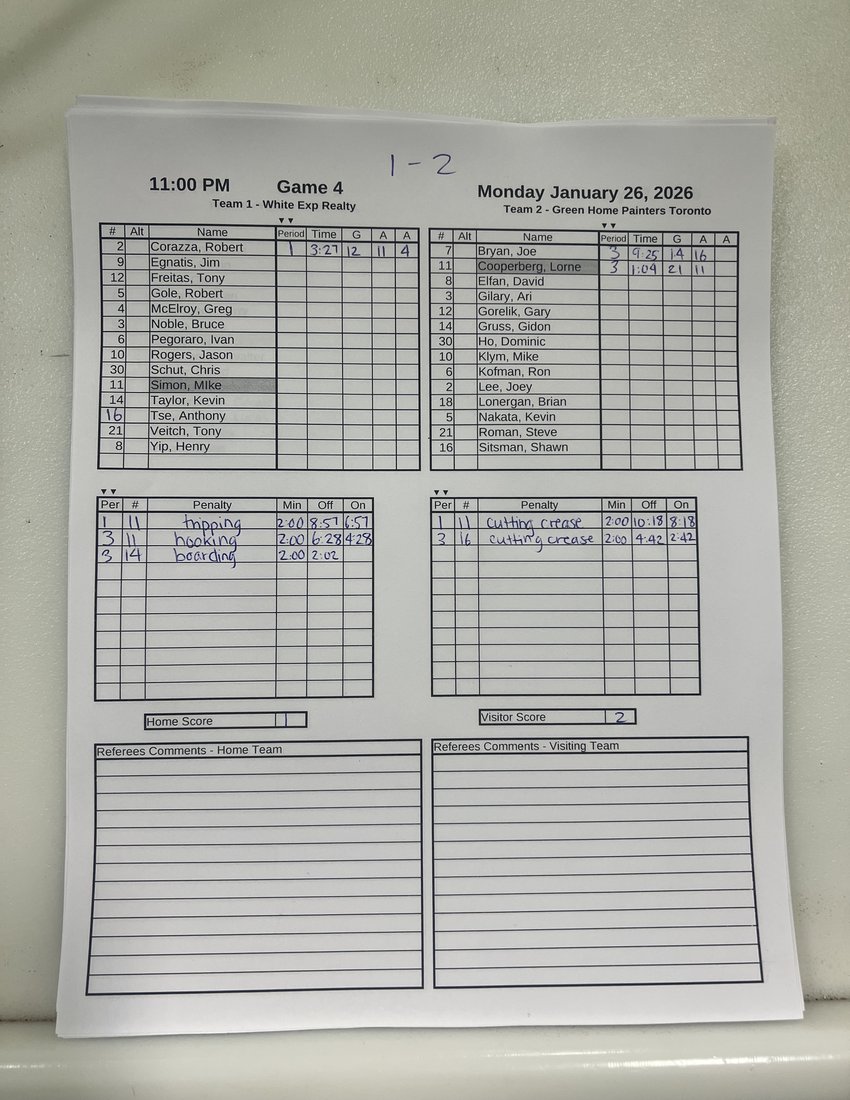 1 - 2
11:00 PM Game 4 Monday January 26, 2026
Team 1 - White Exp Realty
Team 2 - Green Home Painters Toronto
▼▼
# Alt Name Period Time G A A
2 Corazza, Robert 1 3:27 12 11 4
9 Egnatis, Jim
12 Freitas, Tony
5 Gole, Robert
4 McElroy, Greg
3 Noble, Bruce
6 Pegoraro, Ivan
10 Rogers, Jason
30 Schut, Chris
11 Simon, MIke
14 Taylor, Kevin
16 Tse, Anthony
21 Veitch, Tony
8 Yip, Henry
▼▼
# Alt Name Period Time G A A
7 Bryan, Joe 3 9:25 14 16
11 Cooperberg, Lorne 3 1:09 21 11
8 Elfan, David
3 Gilary, Ari
12 Gorelik, Gary
14 Gruss, Gidon
30 Ho, Dominic
10 Klym, Mike
6 Kofman, Ron
2 Lee, Joey
18 Lonergan, Brian
5 Nakata, Kevin
21 Roman, Steve
16 Sitsman, Shawn
▼▼
Per # Penalty Min Off On
1 11 tripping 2:00 8:57 6:57
3 11 hooking 2:00 6:28 4:28
3 14 boarding 2:00 2:02
▼▼
Per # Penalty Min Off On
1 11 cutting crease 2:00 10:18 8:18
3 16 cutting crease 2:00 4:42 2:42
Home Score 1
Visitor Score 2
Referees Comments - Home Team
Referees Comments - Visiting Team